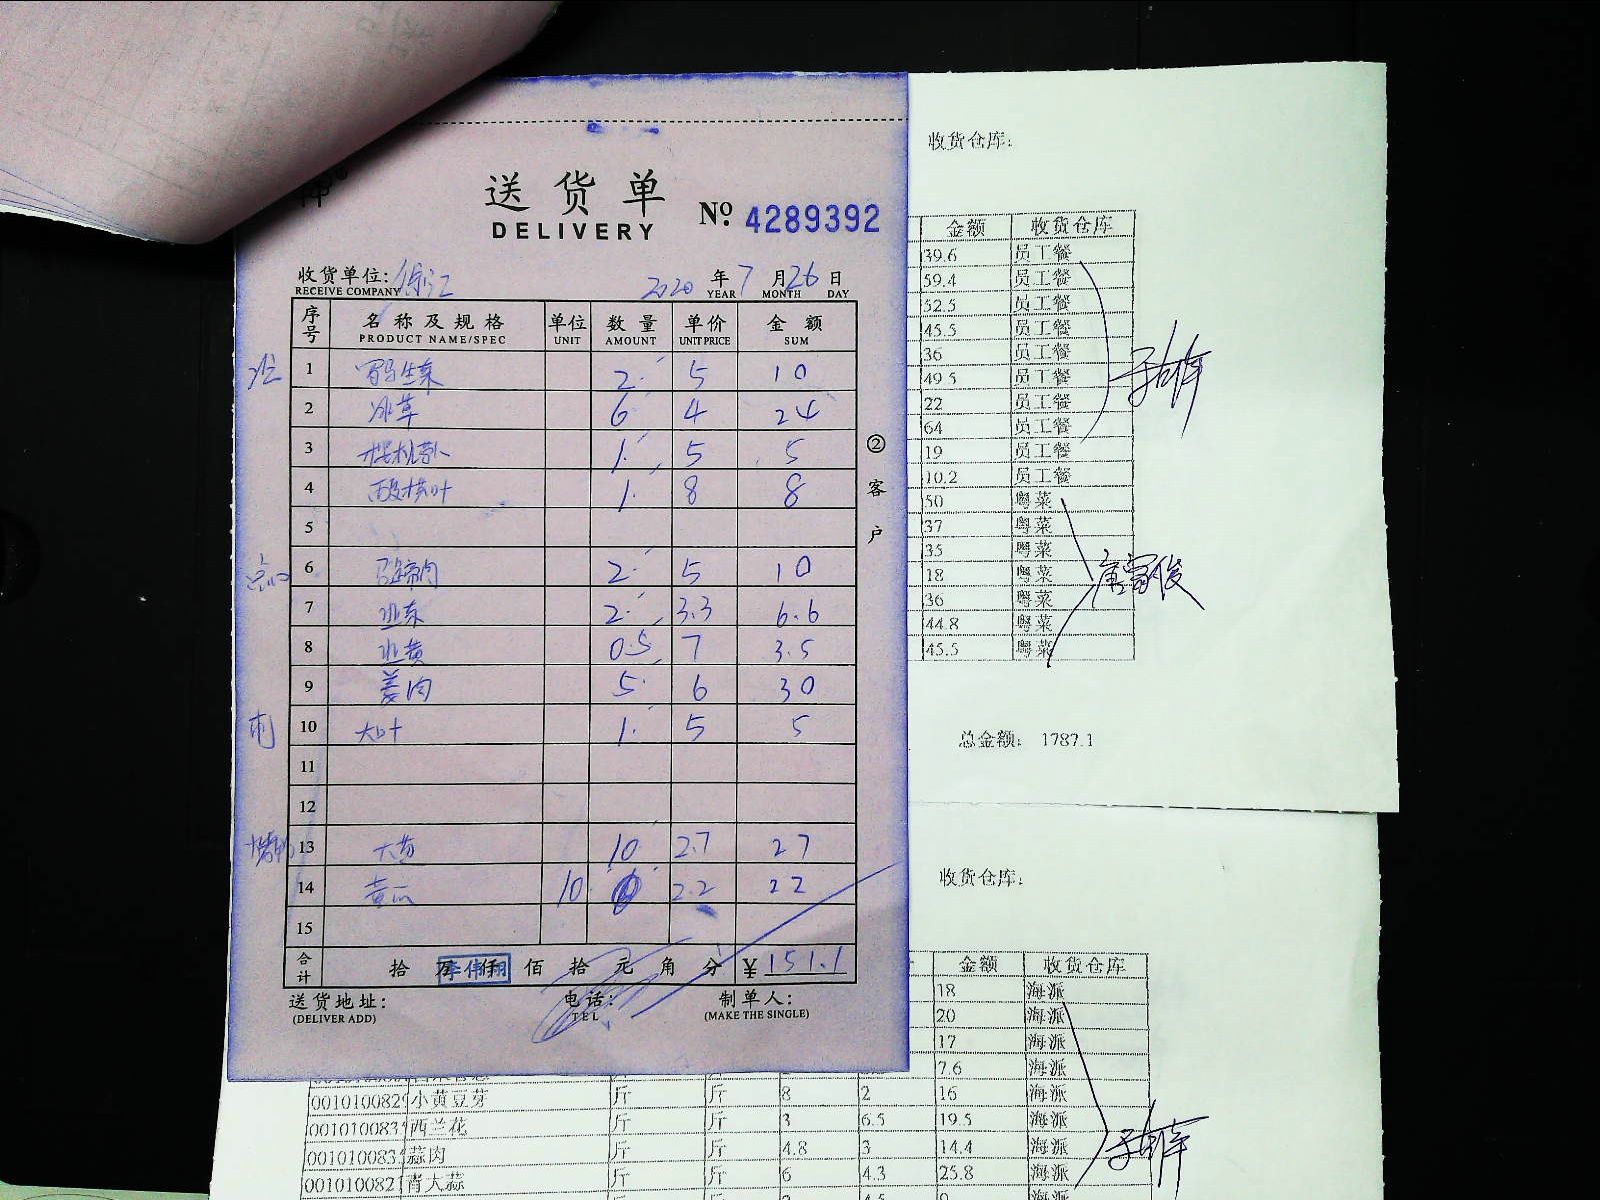 送货单
DELIVERY
№ 4289392
收货单位: 徐汇 2020 年 7 月 26 日
RECEIVE COMPANY YEAR MONTH DAY
序号 名称及规格 单位 数量 单价 金额
PRODUCT NAME/SPEC UNIT AMOUNT UNIT PRICE SUM
1 罗马生菜 2 5 10
2 冰草 6 4 24
3 1 5 5
4 1 8 8
5
点心 6 马蹄肉 2 5 10
7 2 3.3 6.6
8 韭黄 0.5 7 3.5
9 姜肉 5 6 30
10 大叶 1 5 5
11
12
13 10 2.7 27
14 黄瓜 10 2.2 22
15
合计 拾 万 仟 佰 拾 元 角 分 ¥ 151.1
李伟翔
送货地址: 电话: 制单人:
(DELIVER ADD) TEL (MAKE THE SINGLE)
②客户
收货仓库:
金额 收货仓库
39.6 员工餐
59.4 员工餐
52.5 员工餐
45.5 员工餐
36 员工餐
49.5 员工餐
22 员工餐
64 员工餐
19 员工餐
10.2 员工餐
50 粤菜
37 粤菜
35 粤菜
18 粤菜
36 粤菜
44.8 粤菜
45.5 粤菜
唐富俊
总金额: 1787.1
收货仓库:
金额 收货仓库
18 海派
20 海派
17 海派
7.6 海派
001010082 小黄豆芽 斤 斤 8 2 16 海派
001010083 西兰花 斤 斤 3 6.5 19.5 海派
001010083 蒜肉 斤 斤 4.8 3 14.4 海派
001010082 青大蒜 斤 斤 6 4.3 25.8 海派
海派